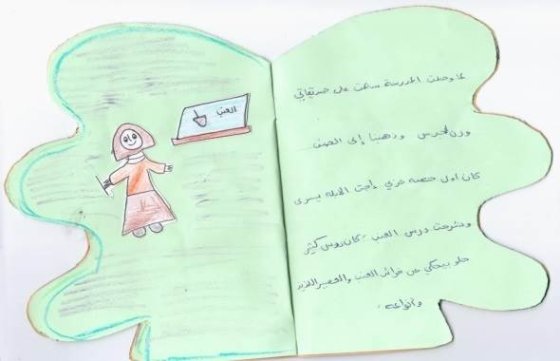 العنب
لما وصلت المدرسة سلمت على صديقاتي
ورن الجرس وذهبنا إلى الصف
كان اول حصة عربي وأجت الأبله يسرى
وشرحت درس العنب كان درس كثير
حلو بيحكي عن فوائد العنب والعصير اللذيذ
وأنواعه.